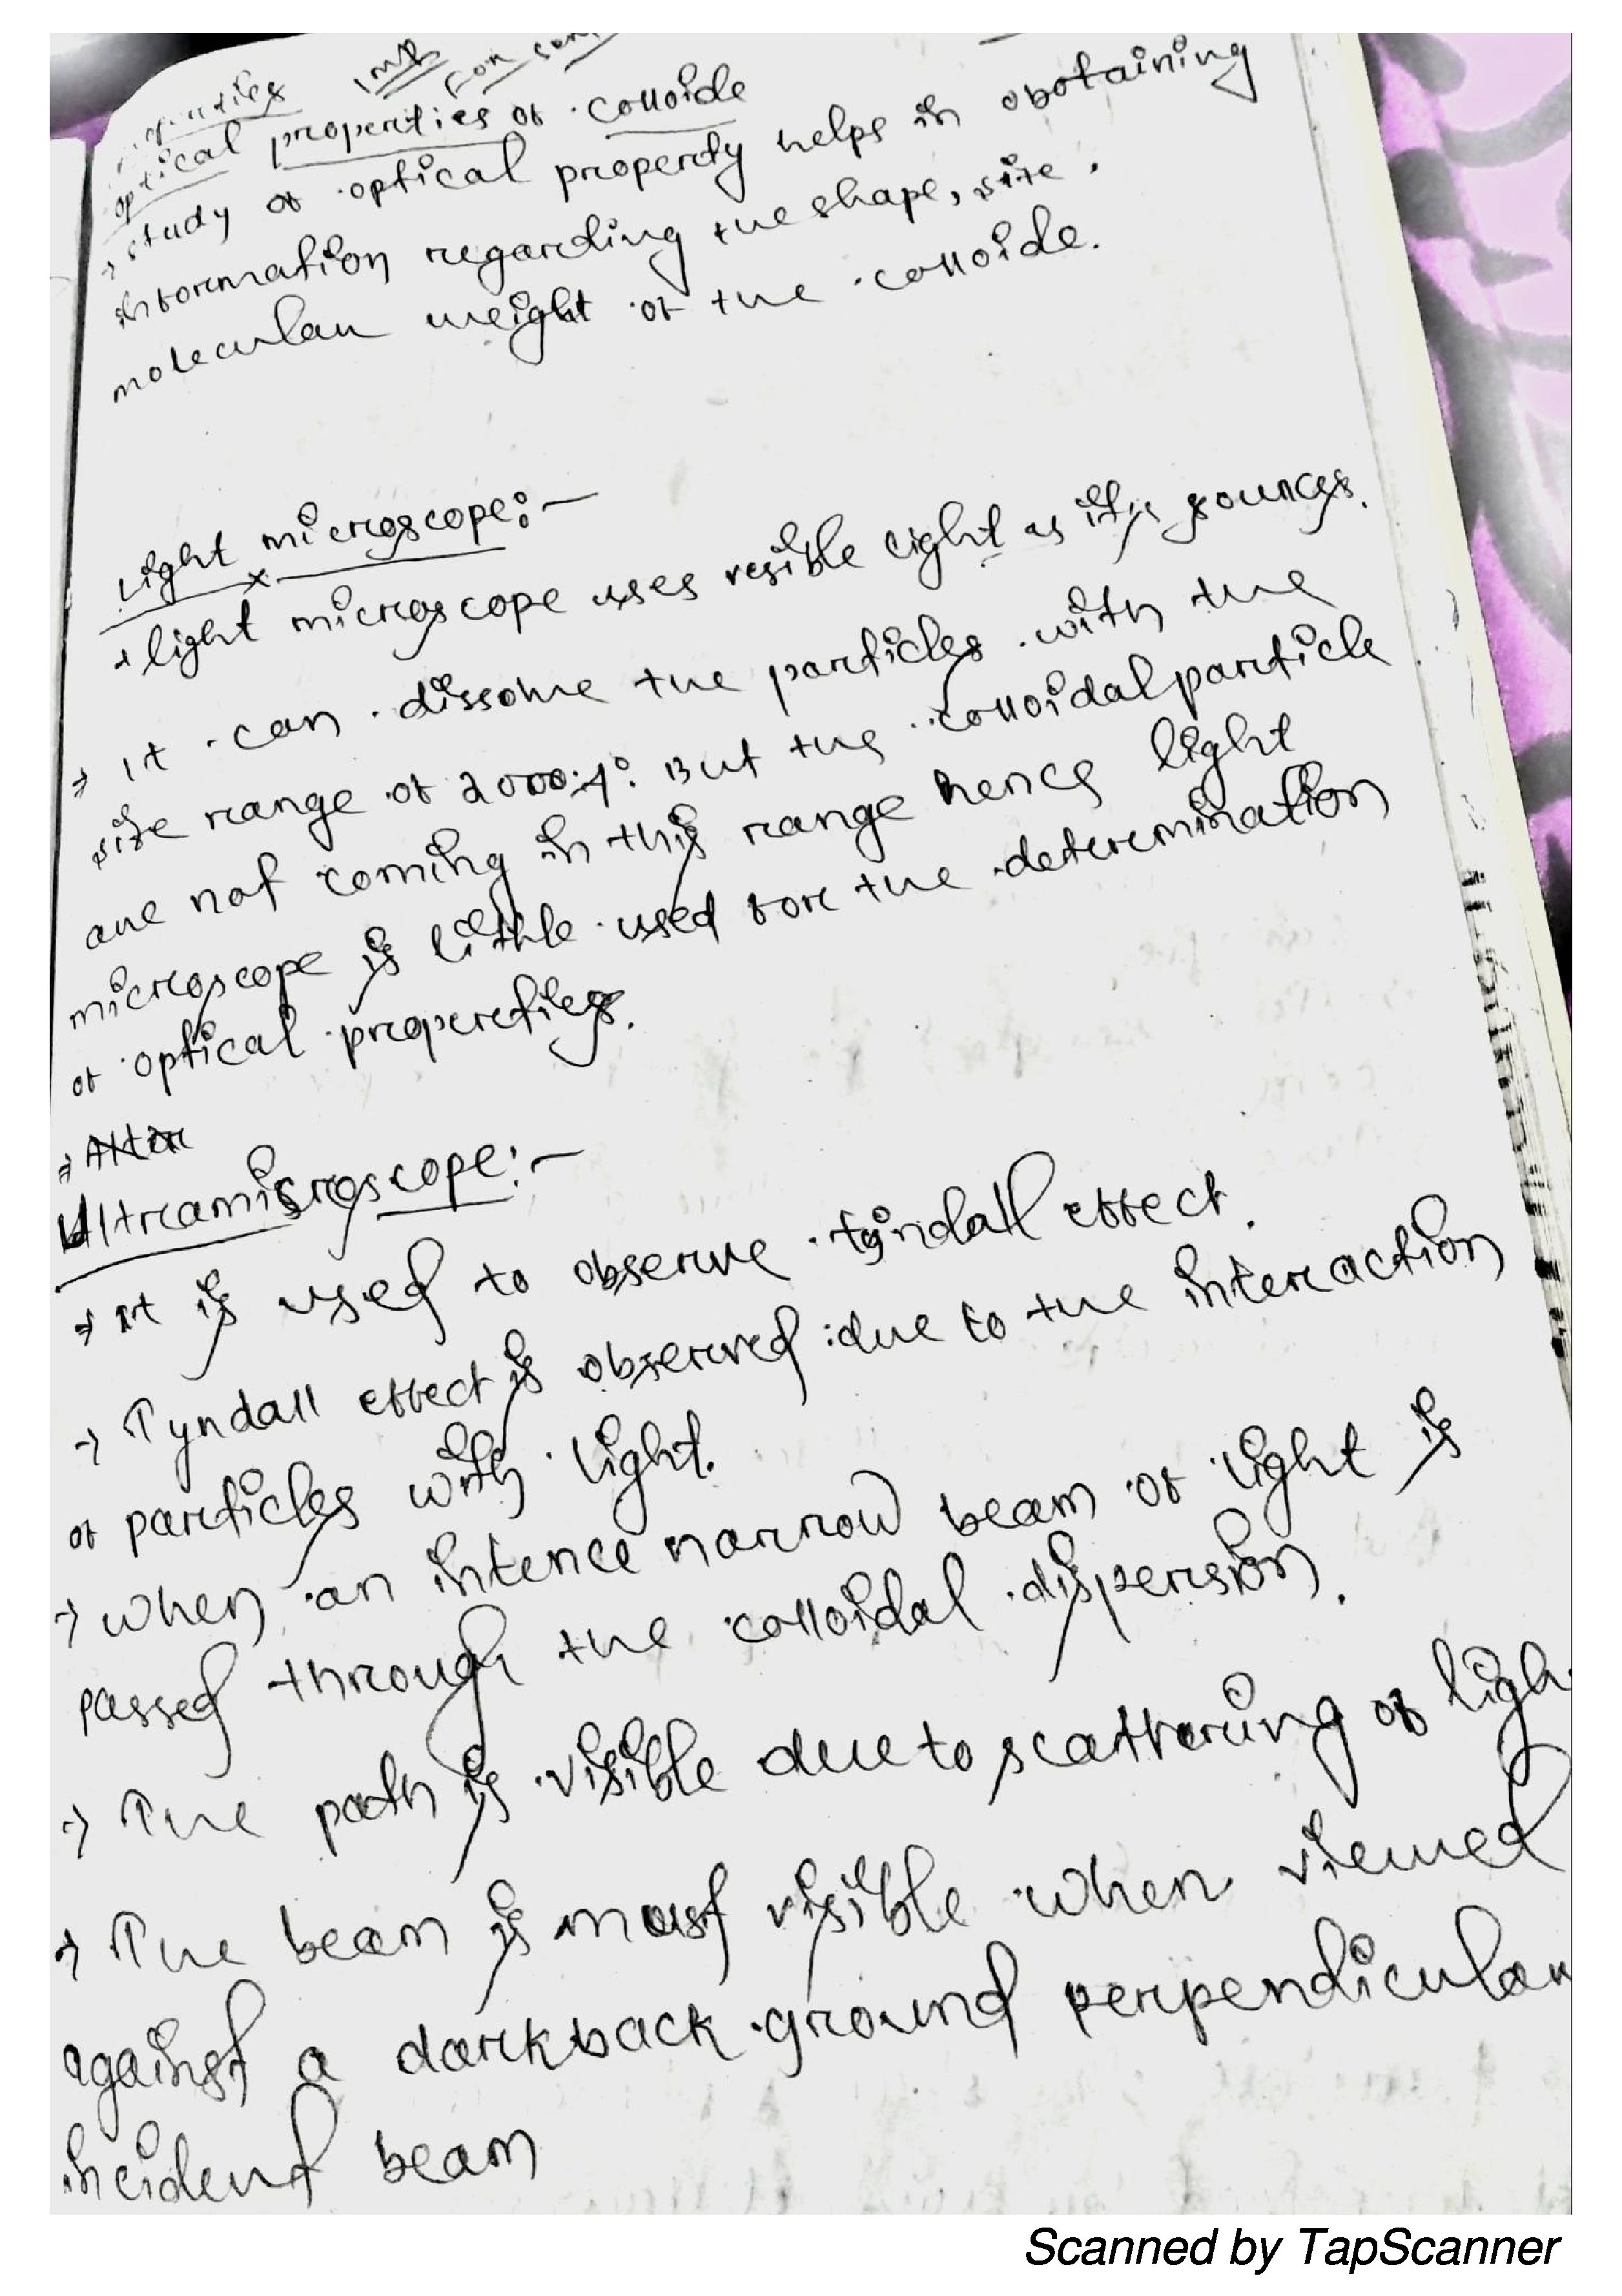 Imp
For sem
optical properties of colloide
→ study of optical property helps in obotaining
information regarding the shape, size,
molecular weight of the colloide.
Light microscope:-
→ light microscope uses vesible light as it's sources.
→ It can dissolve the particles with the
size range of 2000 A°. But the colloidal particle
are not coming in this range hence light
microscope is little used for the determination
of optical properties.
Ultramicroscope:-
→ It is used to observe tyindall effect.
→ Tyndall effect is observed due to the interaction
of particles with light.
→ When an intence narrow beam of light is
passed through the colloidal dispersion.
→ The path is visible due to scattering of ligh
→ The beam is most visible when viewed
against a dark back ground perpendicular
incident beam
Scanned by TapScanner